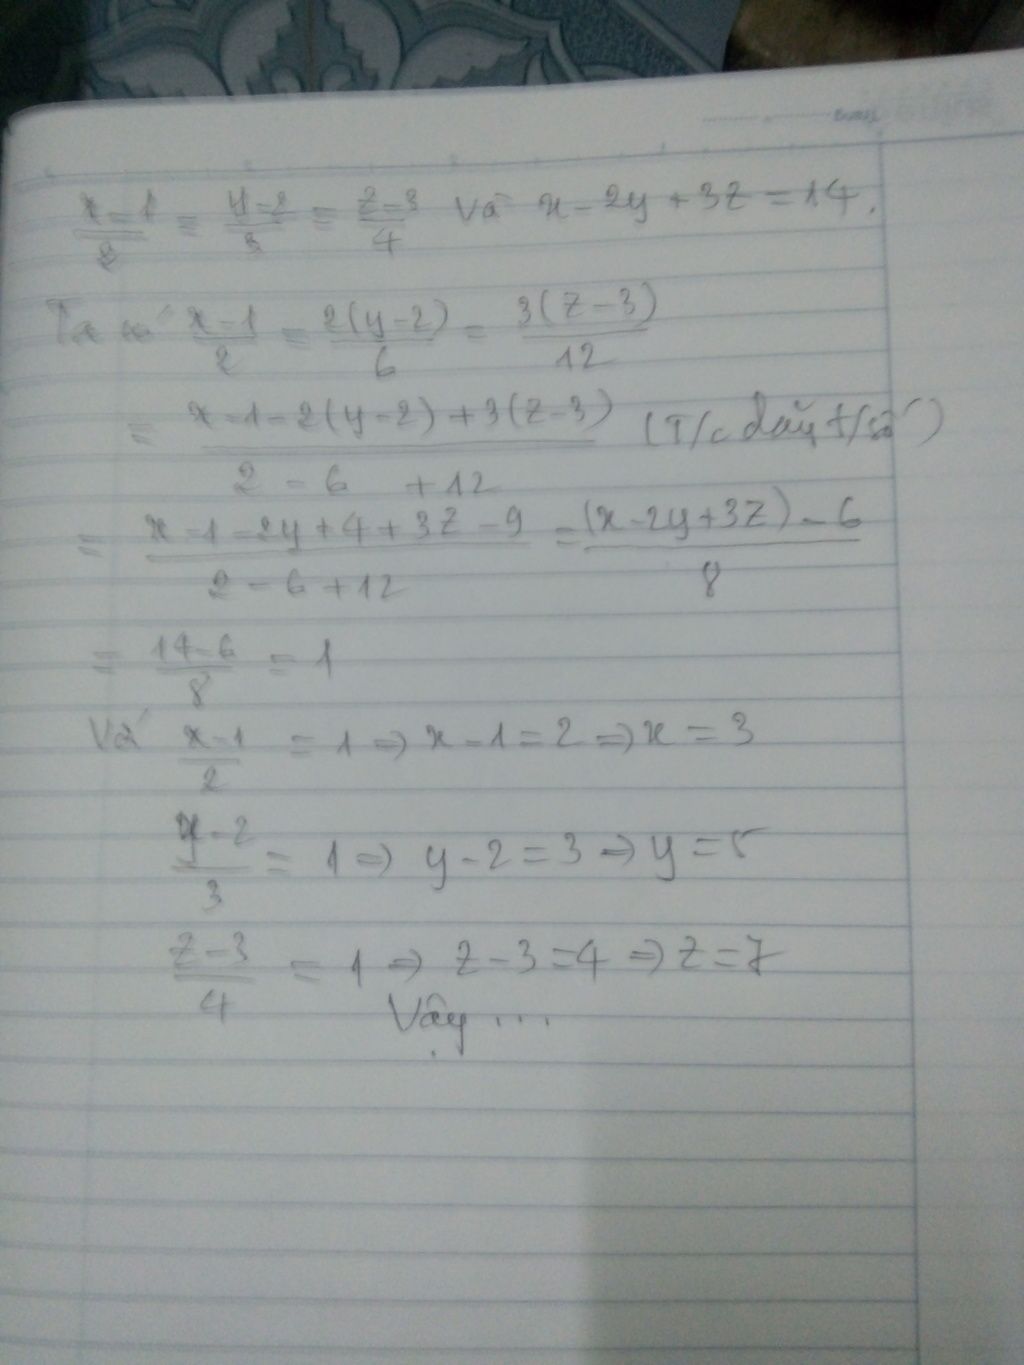 x-1/2 = y-2/3 = z-3/4 Và x-2y+3z=14.
Ta có x-1/2 = 2(y-2)/6 = 3(z-3)/12
= x-1-2(y-2)+3(z-3)/2-6+12 (T/c dãy t/số)
= x-1-2y+4+3z-9/2-6+12 = (x-2y+3z)-6/8
= 14-6/8 = 1
Với x-1/2 = 1 => x-1=2 => x=3
y-2/3 = 1 => y-2=3 => y=5
z-3/4 = 1 => z-3=4 => z=7
Vậy ...